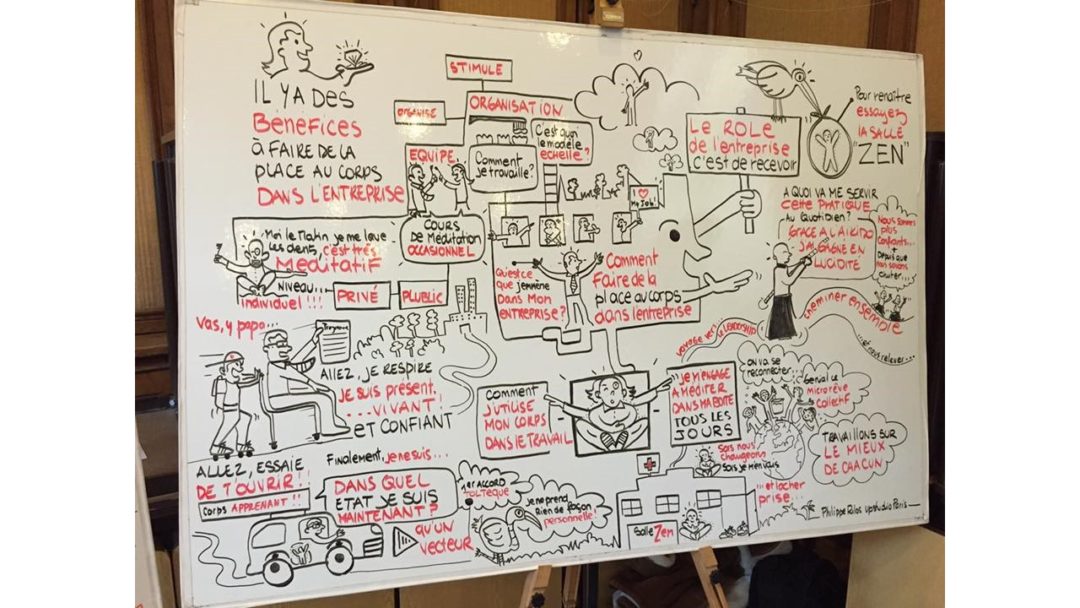 IL Y A DES
BENEFICES
à FAIRE DE LA
PLACE AU CORPS
DANS L'ENTREPRISE
STIMULE
ORGANISE
ORGANISATION
C'est quoi
le modèle
ECHELLE?
EQUIPE
Comment
je travaille?
COURS
DE MéDitation
OCCASIONNEL
Moi le Matin je me lave
les dents, c'est très
MEDITATIF
NIVEAU...
individuel!!!
PRIVÉ
PLUBLIC
I ♥
My Job!
Le ROLE
de l'entreprise
c'est de recevoir
Pour renaître
essayez
LA SALLE
"ZEN"
Qu'est ce
que j'emmène
Dans Mon
ENTREPRISE?
Comment
Faire de la
place au corps
dans l'entreprise
A QUOI VA ME SERVIR
cette PRATIQUE
AU Quotidien?
GRACE A L'AIKIDO
J'AI GAGNE EN
LUCIDITÉ
Nous sommes
plus
confiants...
Depuis que
nous savons
chuter...
cheminer ensemble
...et nous relever...
voyage vers le LEADERSHIP
Vas, y papa...
ALLEZ, JE RESPIRE
Je suis présent,
...VIVANT!
et CONFIANT
Comment
J'UTILISE
MON CORPS
DANS LE TRAVAIL
Je M'ENGAGE
A MéDITER
DANS MA BOITE
TOUS LES
JOURS
ON VA SE
reconnecter...
Génial ce
microrêve
collectif
TRAVAILLONS SUR
LE MIEUX
DE CHACUN
Sois nous
changeons
Sois je m'en vais
...et lacher
prise...
ALLEZ, ESSAIE
DE T'OUVRIR!!
Corps APPRENANT!!
Finalement, je ne suis...
DANS QUEL
ETAT JE SUIS
MAINTENANT?
qu'un
vecteur
1er ACCORD
TOLTEQUE
Je ne prend
Rien de façon
personnelle!
Salle Zen
Philippe Rios upstudio Paris